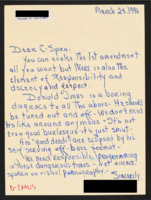 March 29, 1996
Dear C-Span.
You can evoke the 1st amendment
all you want but there is also the
element of Responsibility and
decency and respect.
Donald Imus is a
disgrace to all the above. He should
be tuned out and off. We don't need
his like around anymore - It's not
even good burlesque it's just smut.
His "good deeds" are eclipsed by his
self-serving off base format.
We need responsible programming
in these dangerous times - not silence!
spoken or visual pornography.
Sincerely
D-IMUS